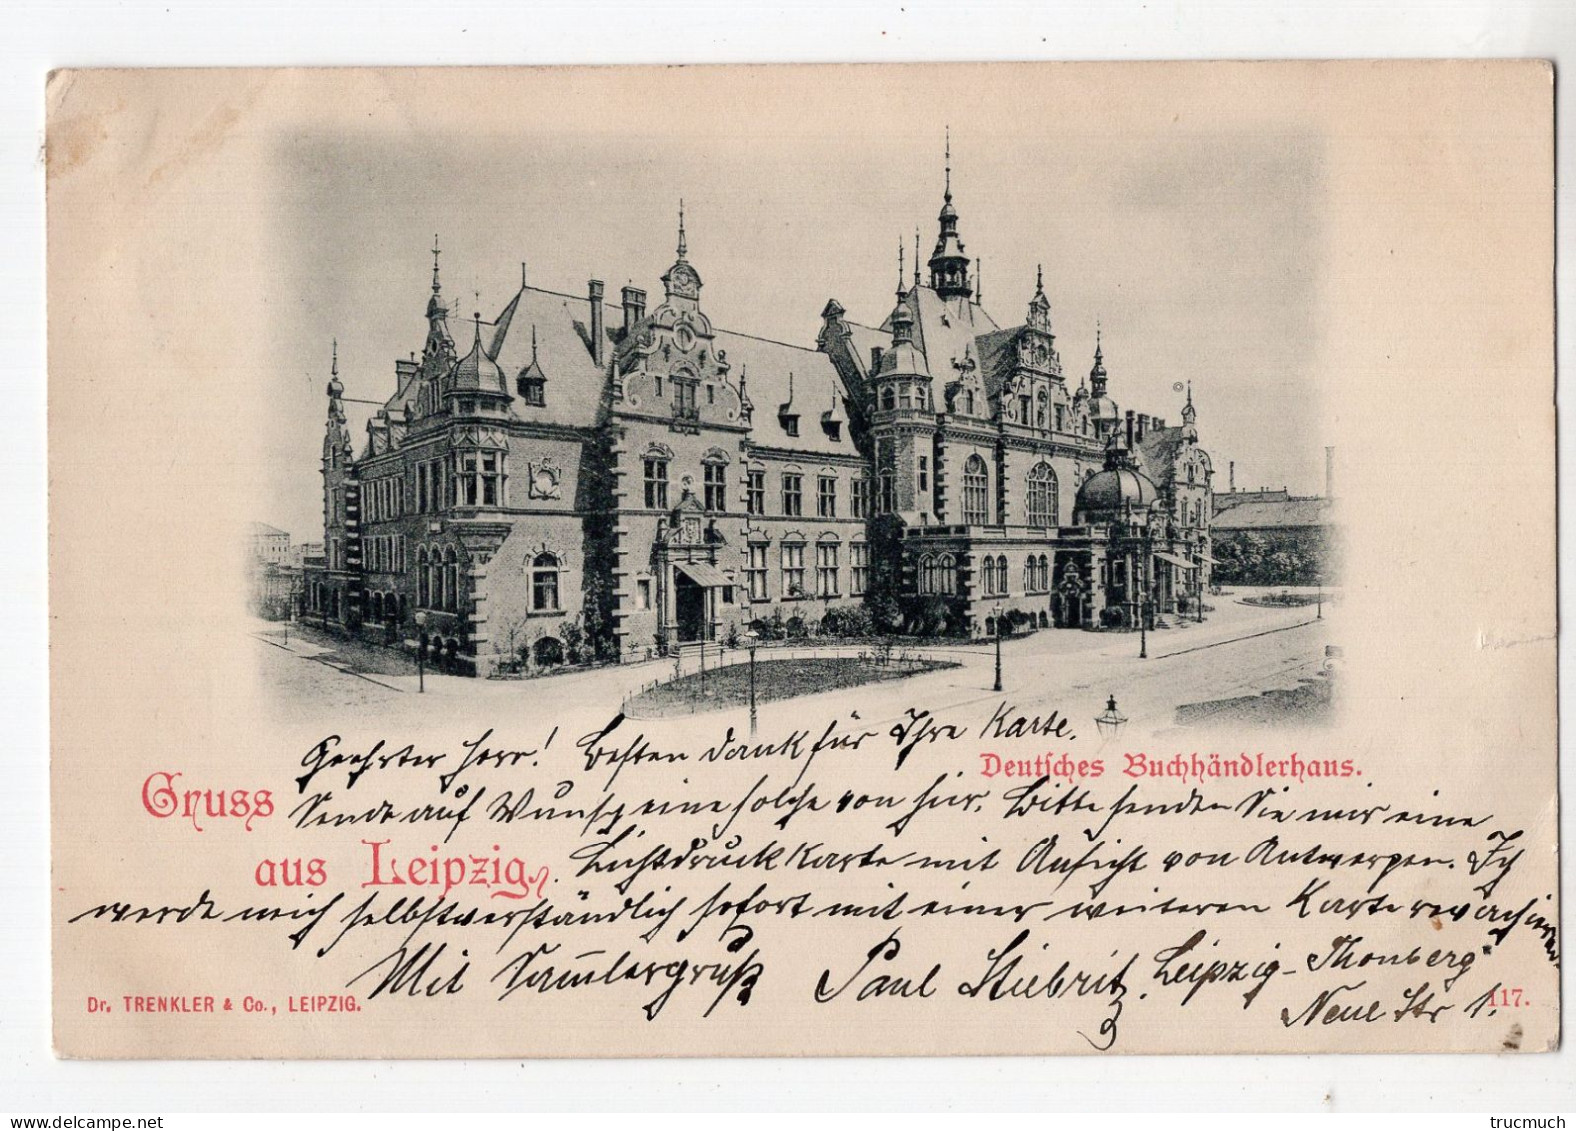 Geehrter Herr! Besten Dank für Ihre Karte.
Deutsches Buchhändlerhaus.
Gruss
Sende auf Wunsch eine solche von hier. Bitte senden Sie mir eine
aus Leipzig.
Lichtdruck Karte mit Ansicht von Antwerpen. Ich
werde mich selbstverständlich sofort mit einer weiteren Karte revachieren.
Mit Sam̅lergruß Paul Stiebritz. Leipzig-Thonberg
Neue Str 1.
Dr. TRENKLER & Co., LEIPZIG.
117.
trucmuch